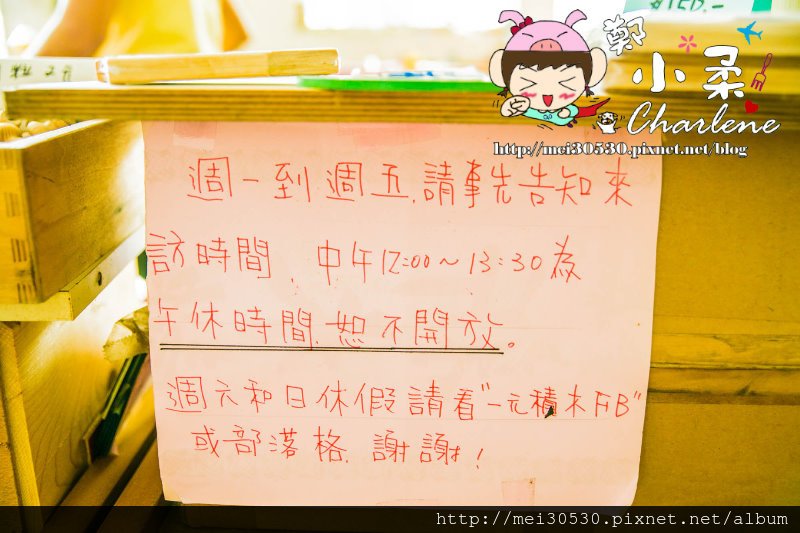 $150.-
鄭小柔
Charlene
http://mei30530.pixnet.net/blog
週一到週五,請事先告知來
訪時間、中午12:00~13:30為
午休時間,恕不開放。
週六和日休假請看"一元積木FB"
或部落格,謝謝!
http://mei30530.pixnet.net/album